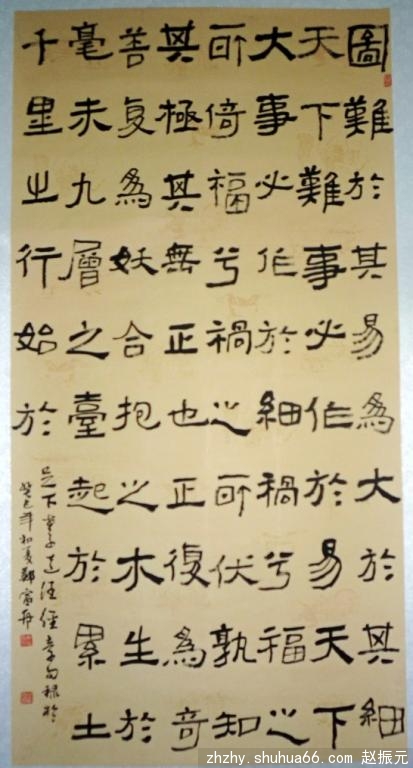 圖難於其易為大於其細
天下難事必作於易天下
大事必作於細禍兮福之
所倚福兮禍之所伏孰知
其極其無正也正復為奇
善复為妖合抱之木生於
毫末九層之臺起於累土
千里之行始於
足下老子道德經章句錄於
癸巳年初夏鄭富
zhzhy.shuhua66.com 赵振元